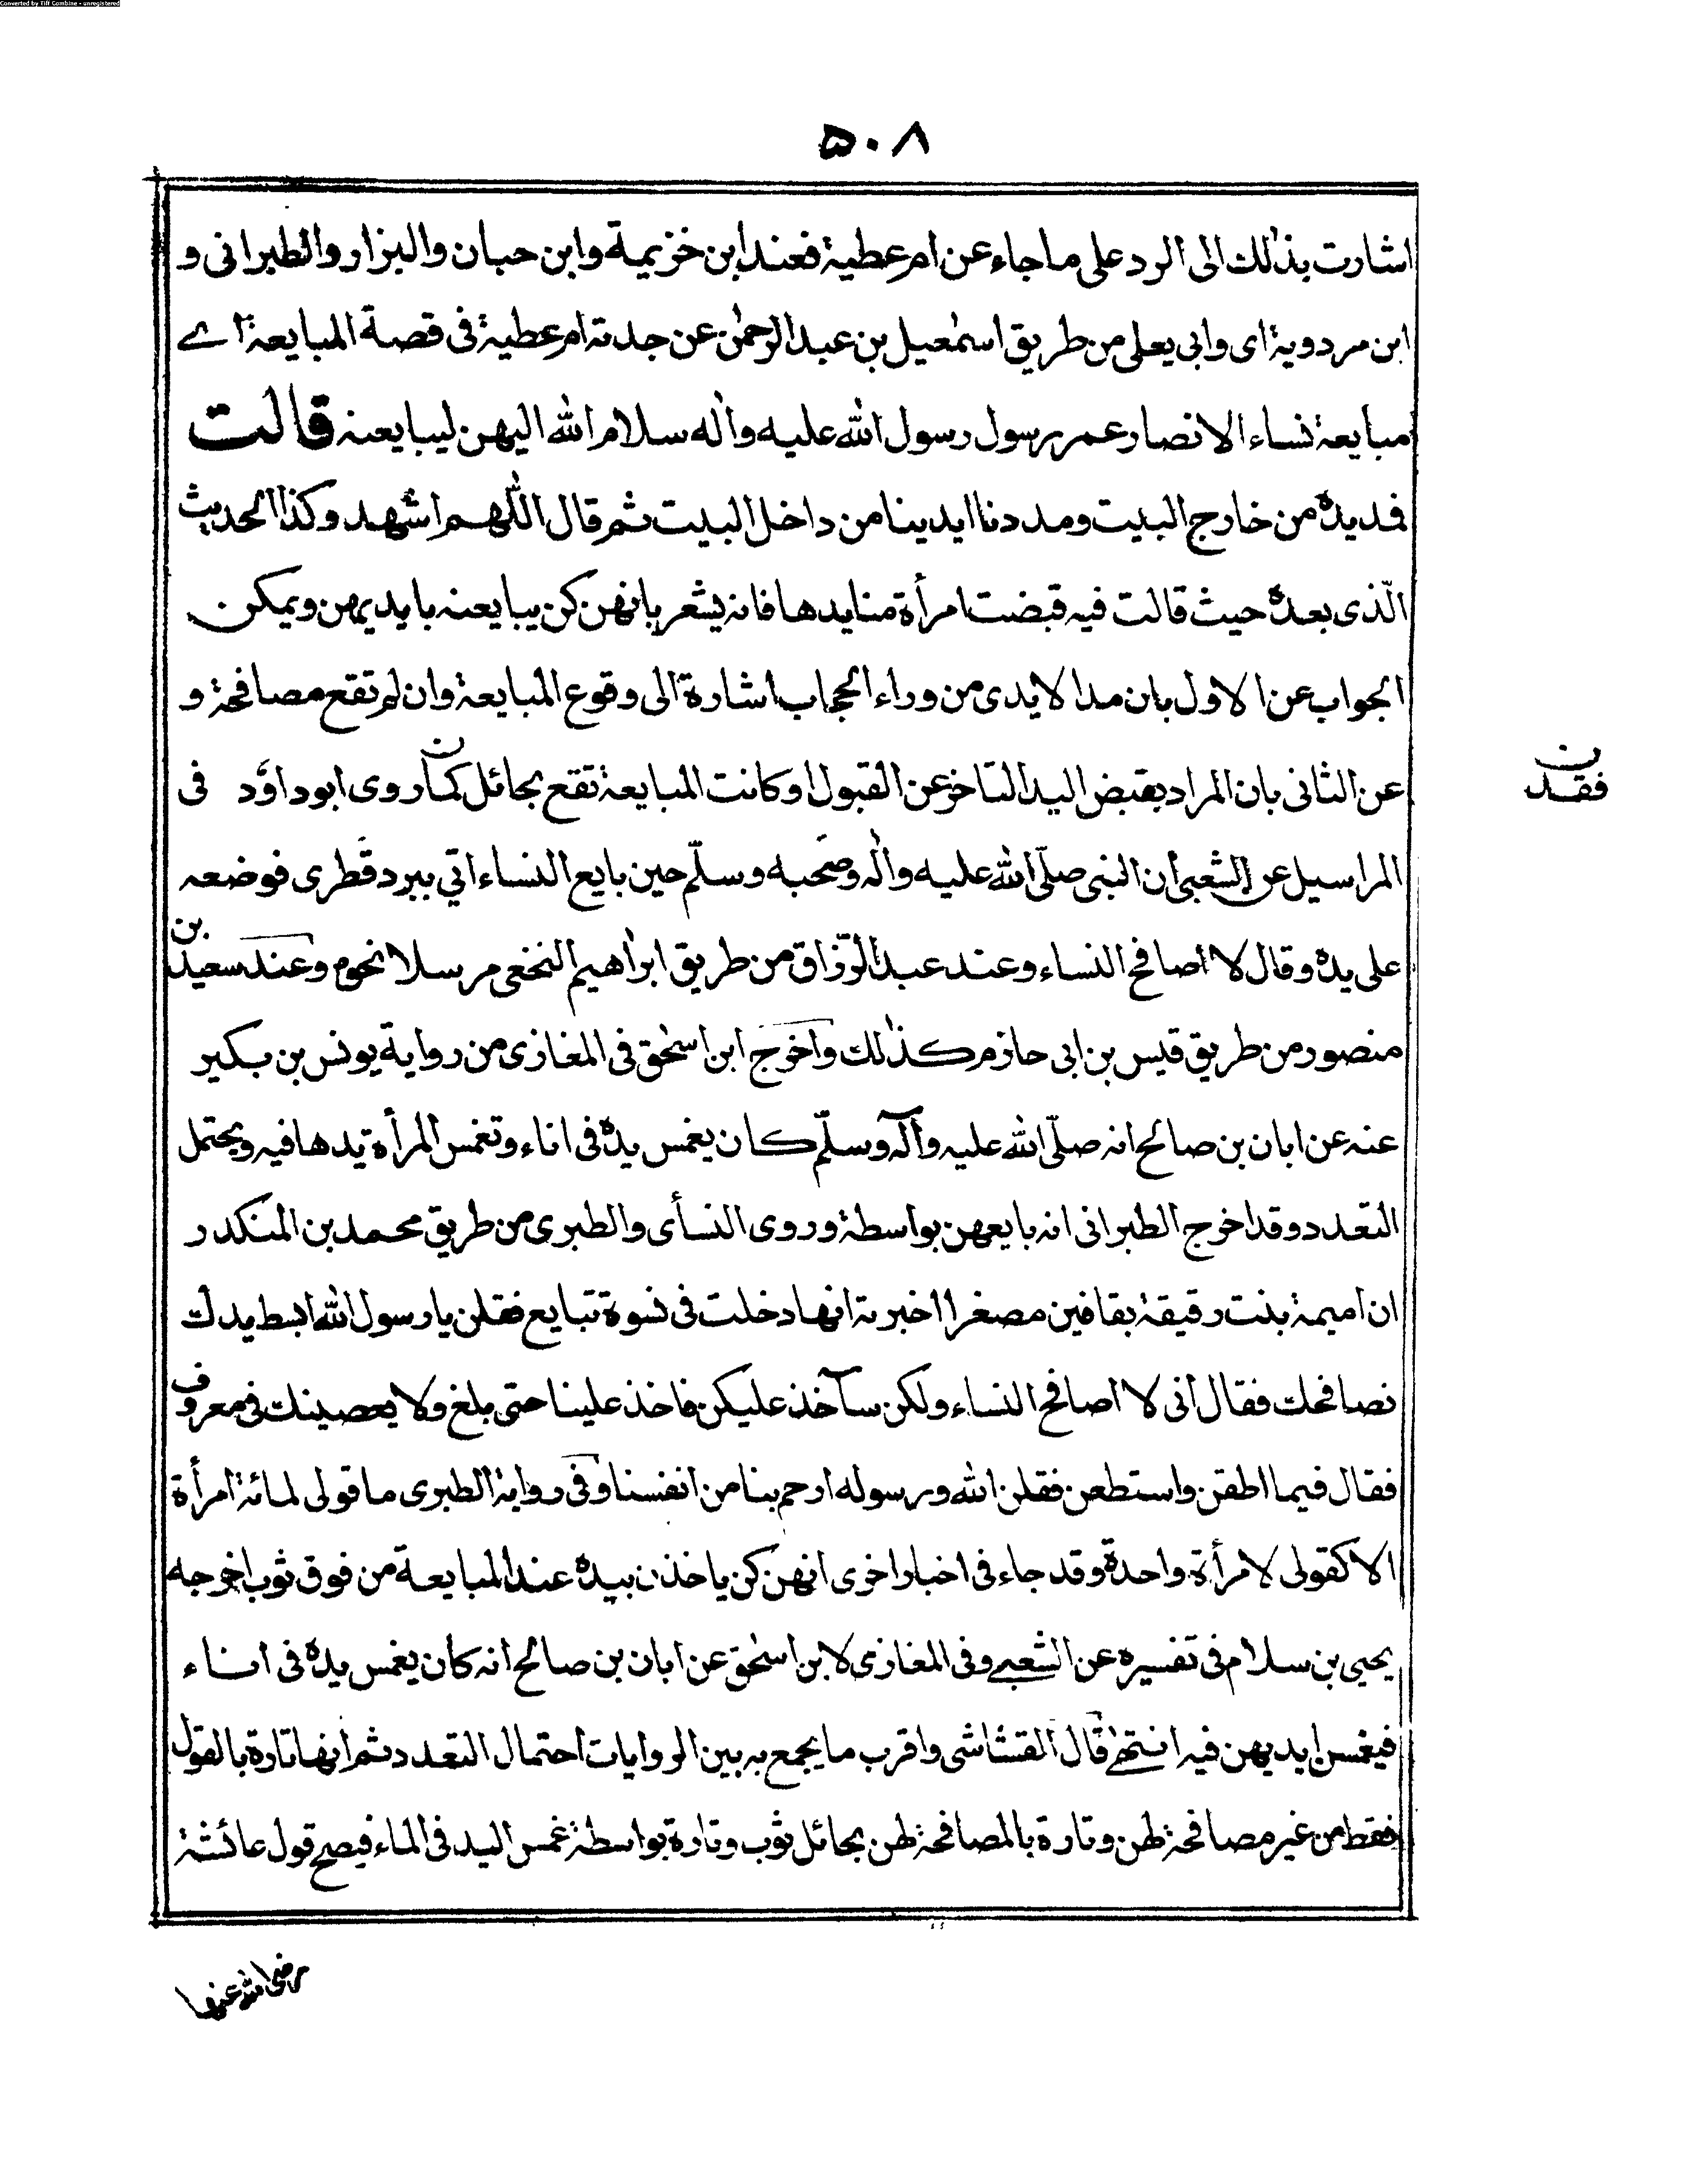 Converted by Tiff Combine - unregistered
٥٠٨
اشارت بذٰلك الى الرد على ما جاء عن ام عطية فعند ابن خزيمة وابن حبان والبزار والطبرانى و
ابن مردوية اى وابى يعلى من طريق اسمٰعيل بن عبد الرحمٰن عن جدته ام عطية فى قصة المبايعة اے
مبايعة نساء الانصار عمر رسول رسول الله عليه واٰله سلام الله اليهن ليبايعنه قالت
فديده من خارج البيت ومددنا ايدينا من داخل البيت ثم قال اللّٰهم اشهد وكذا الحديث
الّذى بعده حيث قالت فيه قبضت امرأة منا يدها فانه يشعر بانهن كن يبايعنه بايديهن ويمكن
الجواب عن الاول بان مد الايدى من وراء الحجاب اشارة الى وقوع المبايعة وان لم تقع مصافحة و
عن الثانى بان المراد بقبض اليد التاخر عن القبول او كانت المبايعة تقع بحائل كمان روى ابو داؤد فى
ن
فقد
المراسيل عن الشعبى أن النبى صلّى الله عليه واٰله وصحبه وسلّم حين بايع النساء اتي ببرد قطرى فوضعه
على يده وقال لا أصافح النساء وعند عبد الرّزاق من طريق ابراهيم النخعى مرسلا نحوه وعند سعيد بن
منصور من طريق قيس بن ابى حازم كذٰلك واخرج ابن اسحٰق فى المغازى من رواية يونس بن بكير
عنه عن ابان بن صالح انه صلّى الله عليه وآله وسلّم كان يغمس يده فى اناء وتغمس المرأة يدها فيه ويحتمل
التعدد وقد اخرج الطبرانى انه بايعهن بواسطة وروى النسأى والطبرى من طريق محمد بن المنكدر
ان اميمة بنت رقيقة بقافين مصغرا اخبرته انها دخلت فى نسوة تبايع فقلن يا رسول الله ابسط يدك
نصافحك فقال انى لا اصافح النساء ولكن سآخذ عليكن فاخذ علينا حتى بلغ ولا يعصينك فى معروف
فقال فيما اطقن واستطعن فقلن الله ورسوله ارحم بنا من انفسنا وفى رواية الطبرى ما قولى لمائة امرأة
الا كقولى لامرأة واحدة وقد جاء فى اخبار اخرى انهن كن ياخذن بيده عند المبايعة من فوق ثوب اخرجه
يحيى بن سلام فى تفسيره عن الشعبے وفى المغازى لابن اسحٰق عن ابان بن صالح انه كان يغمس يده فى اناء
فيغمسن ايديهن فيه انتهى قال القشاشى واقرب ما يجمع به بين الروايات احتمال التعدد ثم انها تارة بالقول
فقط من غير مصافحة لهن وتارة بالمصافحة لهن بحائل ثوب وتارة بواسطة غمس اليد فى الماء فيصح قول عائشة
رضى الله عنها